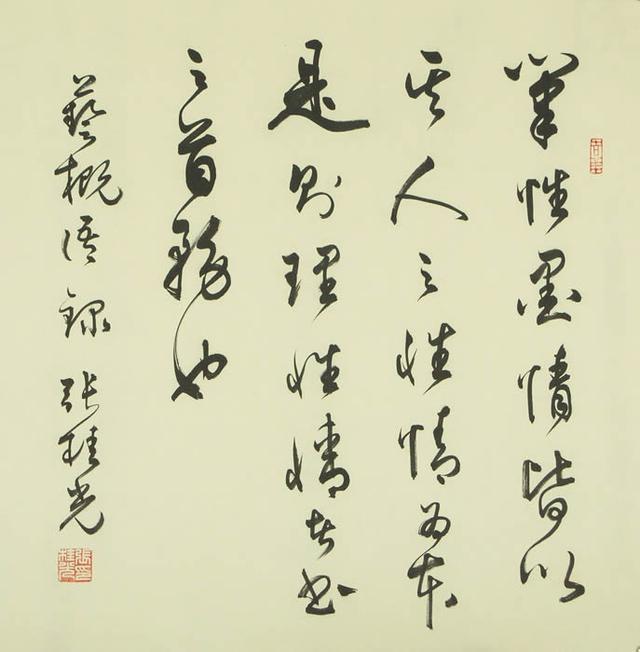 筆性墨情皆以
其人之性情為本
是則理性情者書
之首務也
藝概語錄 張桂光
張桂光